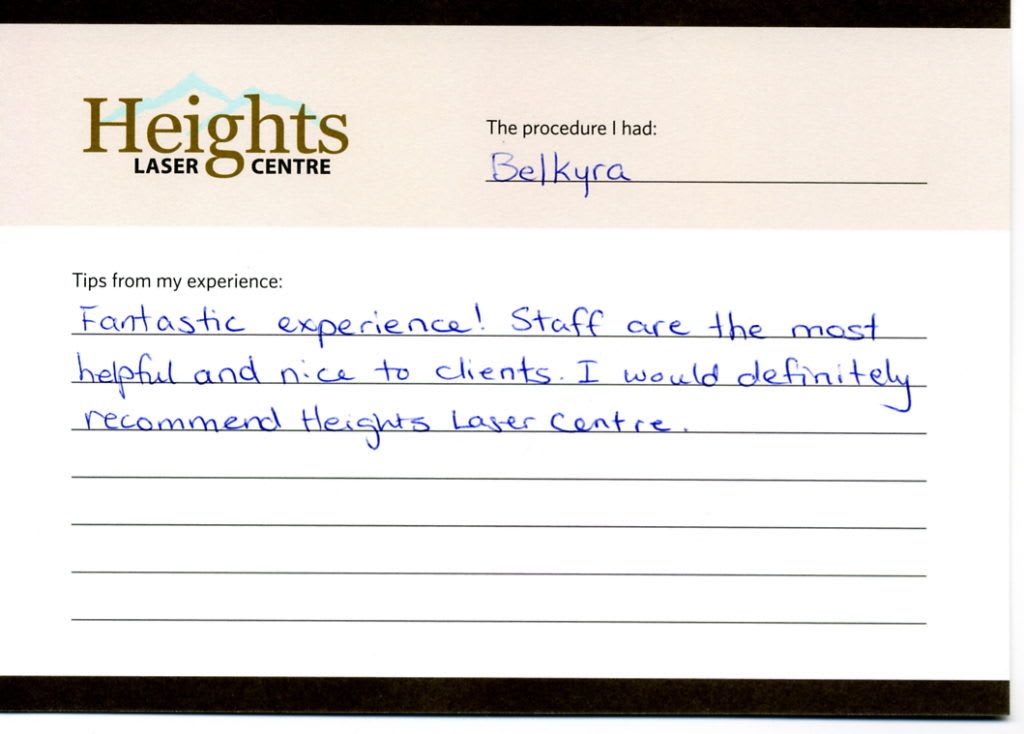 Heights
LASER CENTRE
The procedure I had:
Belkyra
Tips from my experience:
Fantastic experience! Staff are the most
helpful and nice to clients. I would definitely
recommend Heights Laser Centre.